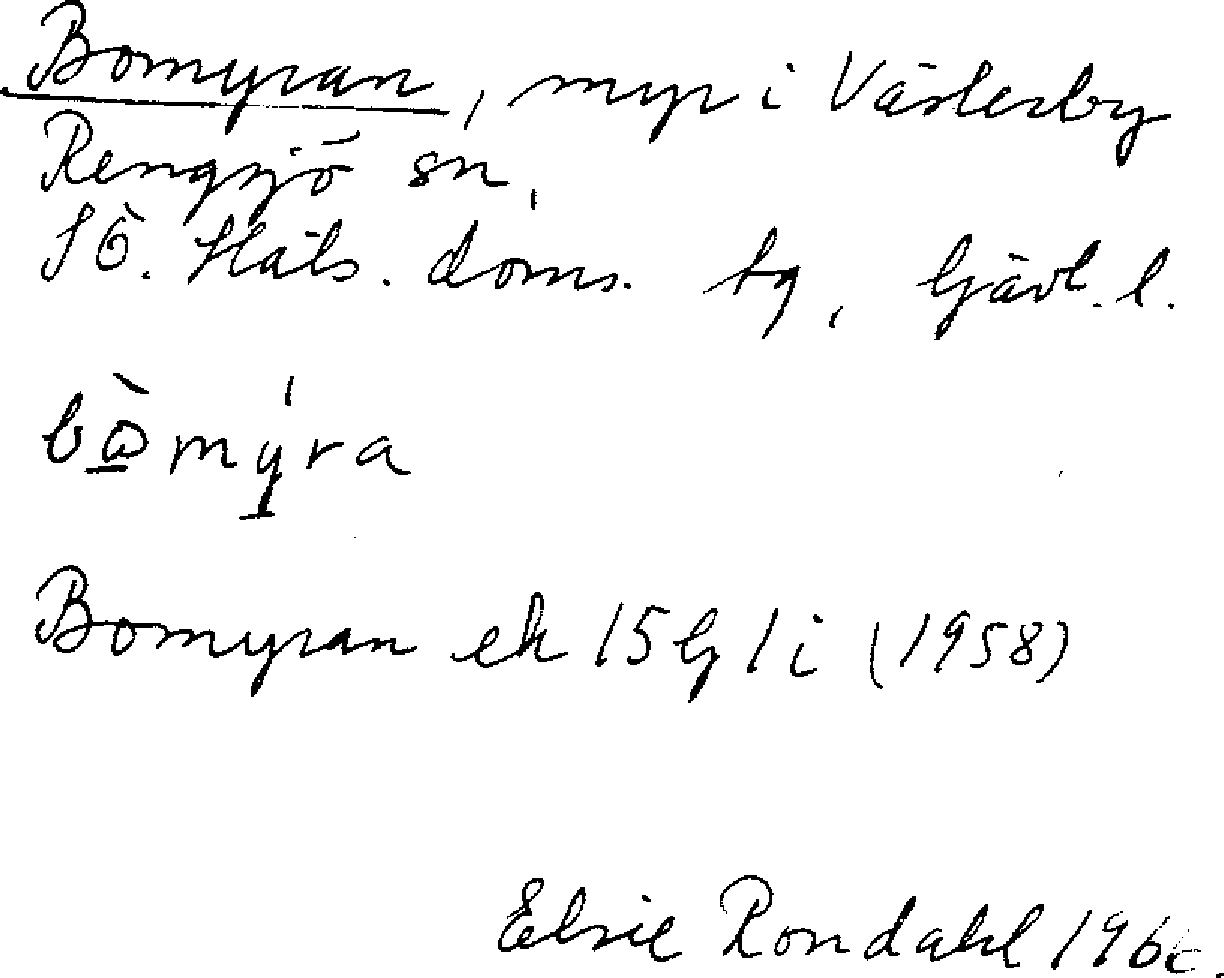 Bomyran, myr i Västerby
Rengsjö sn,
SÖ. Häls. doms. tg, Gävl. l.
bòmýra
Bomyran ek 15 G 1 i (1958)
Elsie Rondahl